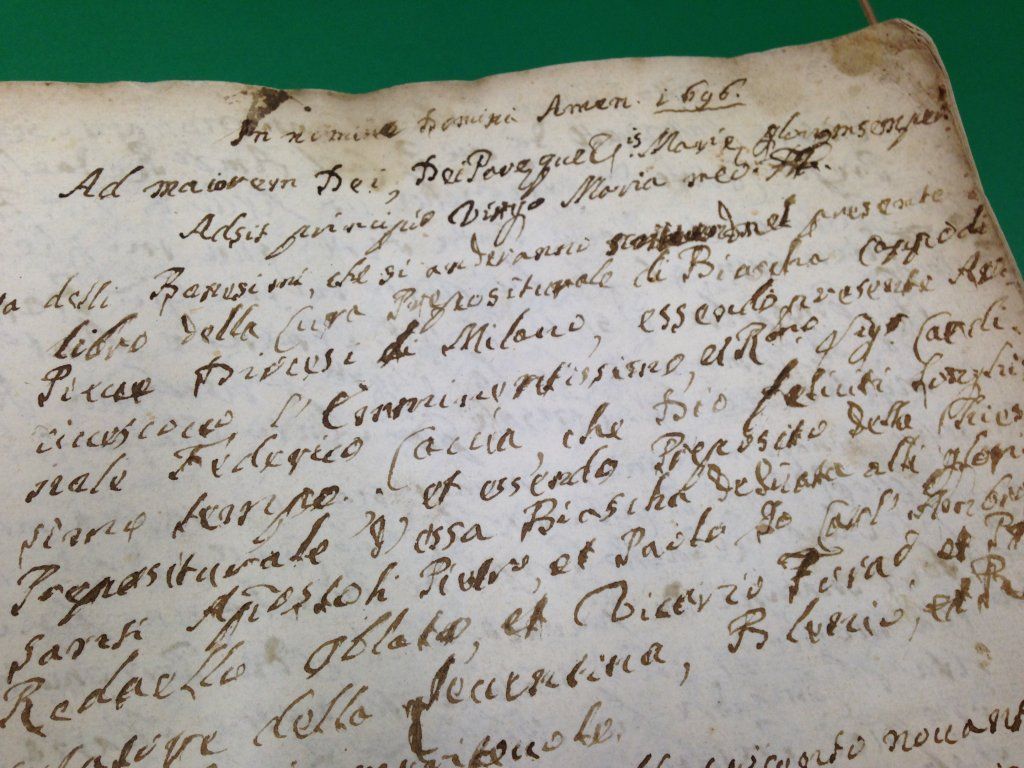 In nomine Domini Amen. 1696.
Ad maiorem Dei, Dei Paræque Mariæ
Adsit principio Virgo Maria meo.
delli Battesimi, che si anderanno nel presente
libro della Cura Prepositurale di Biascha capo di
Pieue Diocesi di Milano, essendo presente
l'Emminentissimo, et R.mo Sig.r Cardi-
nale Federico Caccia, che Dio feliciti longhi-
simo tempo. et essendo Preposito della Chiesa
Prepositurale d'essa Biascha dedicata alli glorio-
Apostoli Pietro, et Paolo Io Carl'
Redaello Oblato, et Vicario Forao et
della Leuentina, Blenio, et
nouant